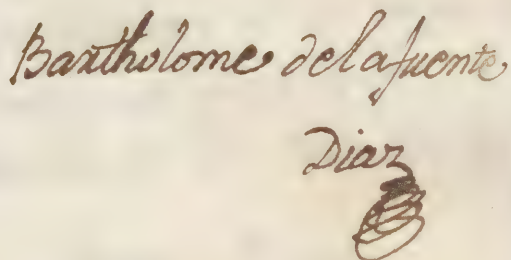 Bartholome delafuente
Diaz